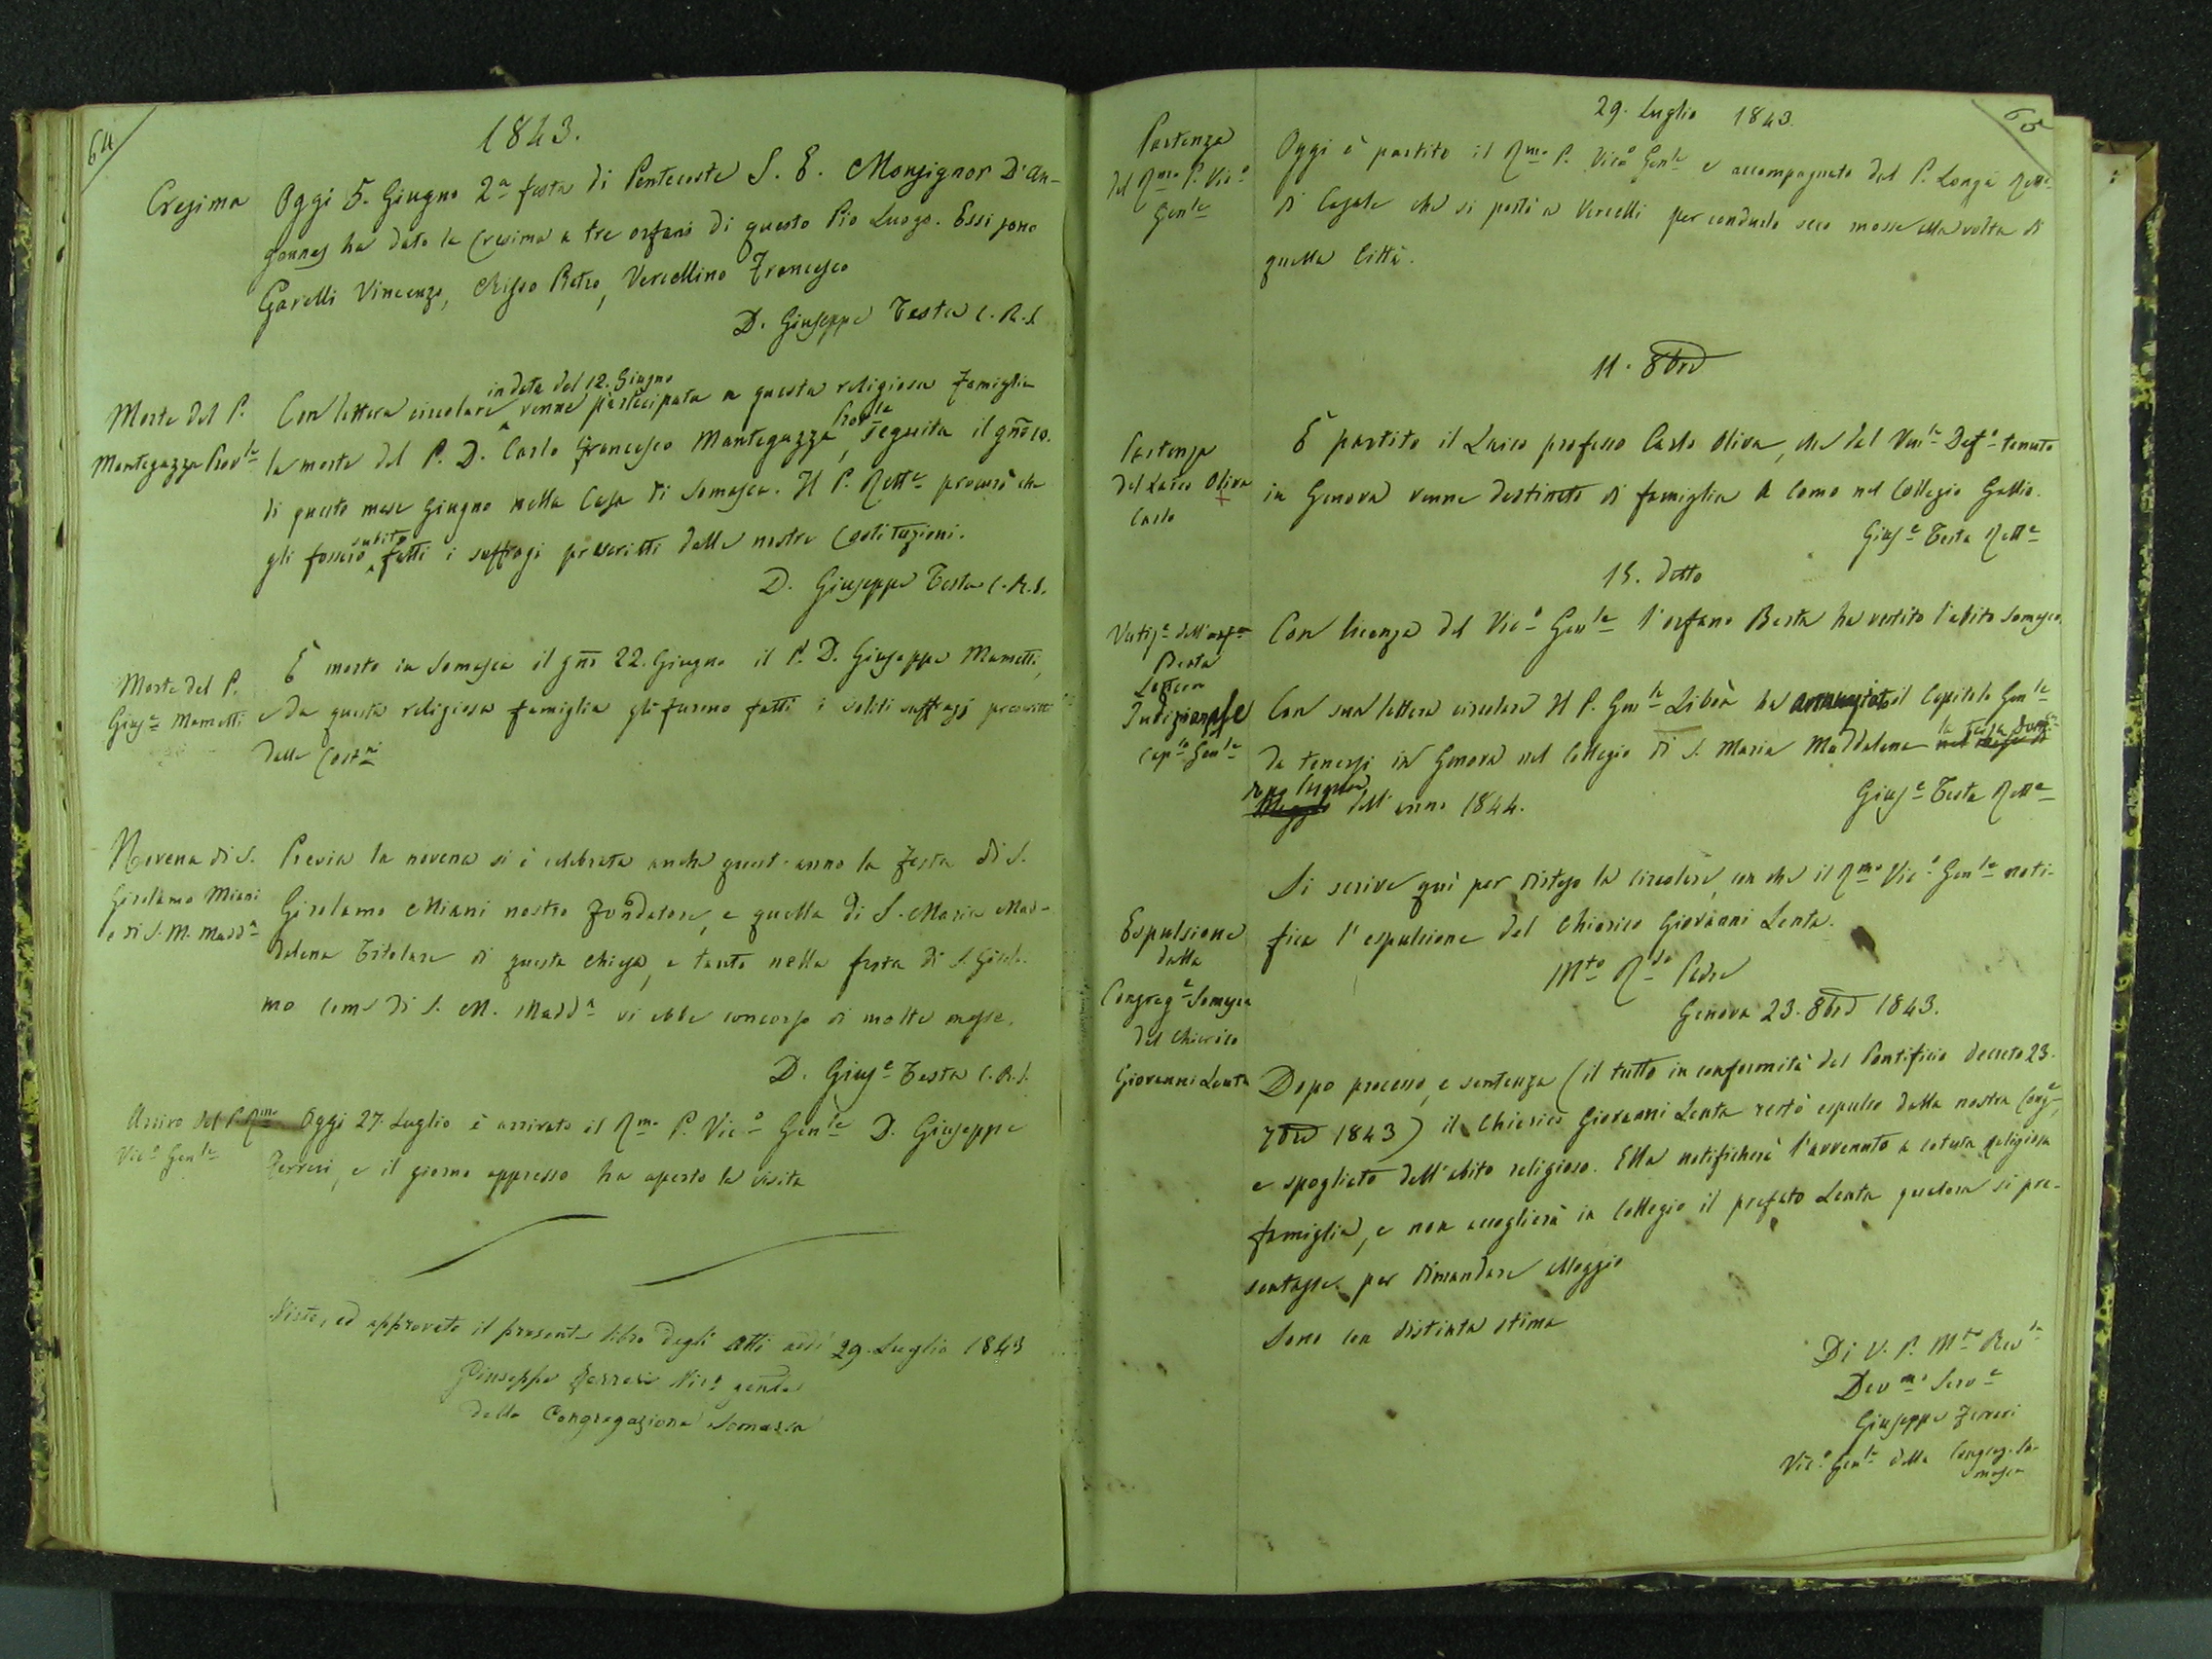 64
1843.
Cresima
Oggi 5. Giugno 2a festa di Pentecoste S. E. Monsignor D'An-
gennes ha dato la Cresima a tre orfani di questo Pio Luogo. Essi sono
Garelli Vincenzo, Pietro, Vercellino Francesco
D. Giuseppe Testa C.R.S.
Morte del P.
Mantegazza Provle
in data del 12. Giugno
Con lettera circolare venne partecipata a questa religiosa famiglia
Provle
la morte del P. D. Carlo Francesco Mantegazza, seguita il gno 10.
di questo mese Giugno nella Casa di Somasca. Il P. Rette procurò che
subito
gli fossero fatti i suffragi prescritti dalle nostre Costituzioni.
D. Giuseppe Testa C.R.S.
Morte del P.
Giuse Mametti
È morto in Somasca il gno 22. Giugno il P. D. Giuseppe Mametti,
e da questa religiosa famiglia gli furono fatti i soliti suffragj prescritti
dalle Costni
Novena di S.
Girolamo Miani
e di S. M. Madda
Previa la novena si è celebrata anche quest'anno la festa di S.
Girolamo Miani nostro Fondatore, e quella di S. Maria Mad-
dalena Titolare di questa chiesa, e tanto nella festa di S. Girola-
mo come di S. M. Madda vi ebbe concorso di molte messe.
D. Giuse Testa C.R.S.
Arrivo del P. Rmo
Vico Genle
Oggi 27. Luglio è arrivato il Rmo P. Vico Genle D. Giuseppe
Ferreri, e il giorno appresso ha aperto la visita
Visto, ed approvato il presente libro degli Atti addì 29. Luglio 1843
Giuseppe Ferreri Vico genle
della Congregazione Somasca
65
29. Luglio 1843.
Partenza
del Rmo P. Vico
Genle
Oggi è partito il Rmo P. Vico Genle e accompagnato dal P. Longa Rette
di Casale che si portò a Vercelli per condurlo seco mosse alla volta di
quella Città.
11. 8bre
Partenza
del Laico Oliva
Carlo
È partito il Laico professo Carlo Oliva, che dal Venle Defo tenuto
in Genova venne destinato di famiglia a Como nel Collegio Gallio.
Giuse Testa Rette
15. detto
Vestize dell'orfo
Besta
Con licenza del Vico Genle l'orfano Besta ha vestito l'abito Somasco.
Lettera
Indizionale
Caplo Genle
Con sua lettera circolare Il P. Genle Libòa ha annunziato il Capitolo Genle
la terza Domca
da tenersi in Genova nel Collegio di S. Maria Maddalena nel mese di
dopo Pasqua
Maggio dell'anno 1844.
Giuse Testa Rette
Espulsione
dalla
Congrege Somasca
del Chierico
Giovanni Lenta
Si scrive quì per disteso la circolare, con che il Rmo Vico Genle noti-
fica l'espulsione del Chierico Giovanni Lenta.
Mto Rdo Padre
Genova 23. 8bre 1843.
Dopo processo, e sentenza (il tutto in conformità del Pontificio decreto 23.
7bre 1843) il Chierico Giovanni Lenta restò espulso dalla nostra Conge,
e spogliato dell'abito religioso. Ella notificherà l'avvenuto a cotesta religiosa
famiglia, e non accoglierà in Collegio il prefato Lenta qualora si pre-
sentasse per dimandare alloggio
Sono con distinta stima
Di V. P. Mto Revda
Devmo Serve
Giuseppe Ferreri
Vico Genle della Congreg. So-
masca